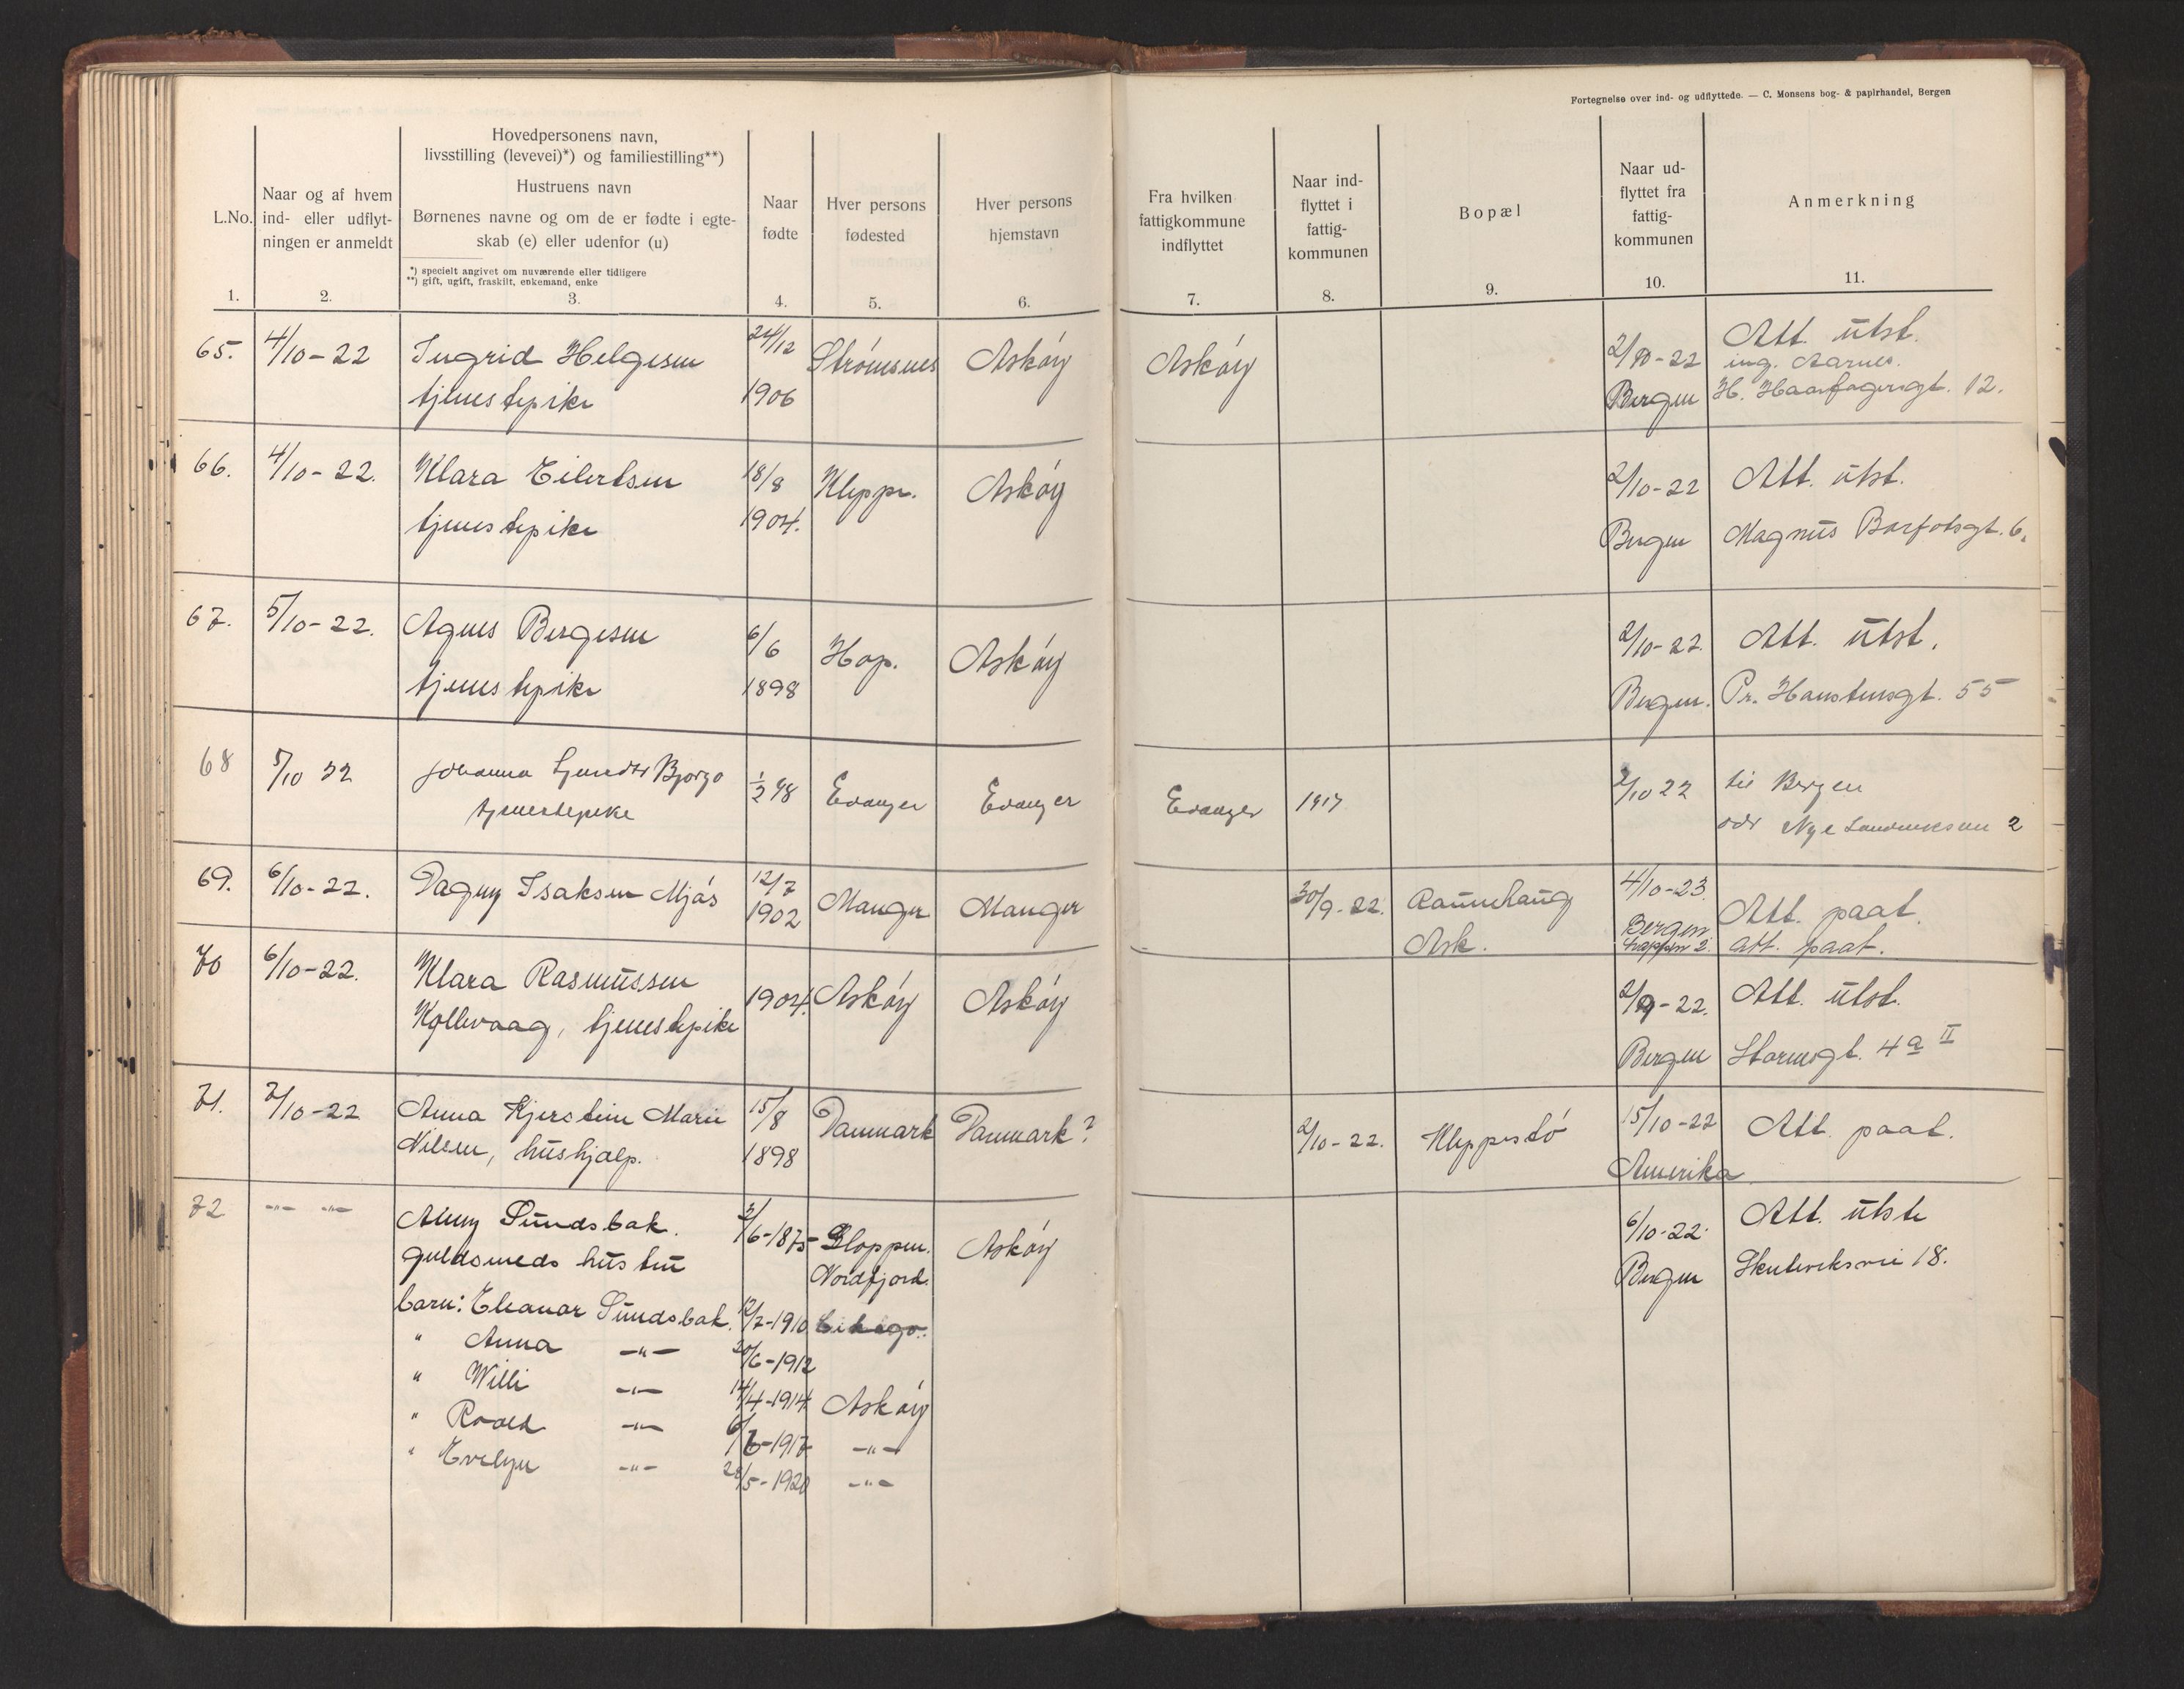 Fortegnelse over ind- og udflyttede. — C. Monsens bog- & papirhandel, Bergen
L.No.
1.
Naar og af hvem
ind- eller udflyt-
ningen er anmeldt
2.
Hovedpersonens navn,
livsstilling (levevei)*) og familiestilling**)
Hustruens navn
Børnenes navne og om de er fødte i egte-
skab (e) eller udenfor (u)
*) specielt angivet om nuværende eller tidligere
**) gift, ugift, fraskilt, enkemand, enke
3.
Naar
fødte
4.
Hver persons
fødested
5.
Hver persons
hjemstavn
6.
Fra hvilken
fattigkommune
indflyttet
7.
Naar ind-
flyttet i
fattig-
kommunen
8.
Bopæl
9.
Naar ud-
flyttet fra
fattig-
kommunen
10.
Anmerkning
11.
65. 4/10-22 Ingrid Helgesen 24/12 Strömsnes Asköy Asköy 2/10-22 Att. utst.
ing. Aarnes.
tjenestepike 1906 Bergen H. Haarfagersgt. 12.
66. 4/10-22. Klara Eilertsen 18/8 Kleppe. Asköy 2/10-22 Att. utst.
tjenestepike 1904. Bergen Magnus Barfotsgt. 6.
67. 5/10-22. Agnes Bergesen 6/6 Hop. Asköy 2/10-22. Att. utst.
tjenestepike 1898 Bergen. Pr. Hansteensgt. 55
68 5/10 22 Johanna Bjorgo 1/2 98 Evanger Evanger Evanger 1917 2/10 22 til Bergen
tjenestepike adr Nye 2
69. 6/10-22. Dagny Isaksen Mjös 12/7 1902 Manger Manger 30/9-22. Raunehaug 4/10-23. Att. paat.
Ask. Bergen 2. att. paat.
70 6/10-22. Klara Rasmussen 1904. Asköy Asköy 2/9-22. Att. utst.
Kollevaag, tjenestepike Bergen Starmsgt. 4a II
71. 7/10-22 Anna Kjerstine Marie 15/8 Danmark Danmark? 2/10-22. Kleppestö 15/10-22 Att. paat.
Nilsen, hushjælp. 1898 Amerika
72 -"- -"- Alny Sundsbak. 3/6-1875 Gloppen. Asköy 6/10-22. Att. utste
guldsmeds hustru Nordfjord. Bergen Skuteviksvei 18.
barn: Eleanor Sundsbak. 12/7-1910
" Anna -"- 20/6-1912
" Willi -"- 14/4-1914 Asköy
" Roald -"- 6/6-1917 -"-
" Evelyn -"- 28/5-1920 -"-